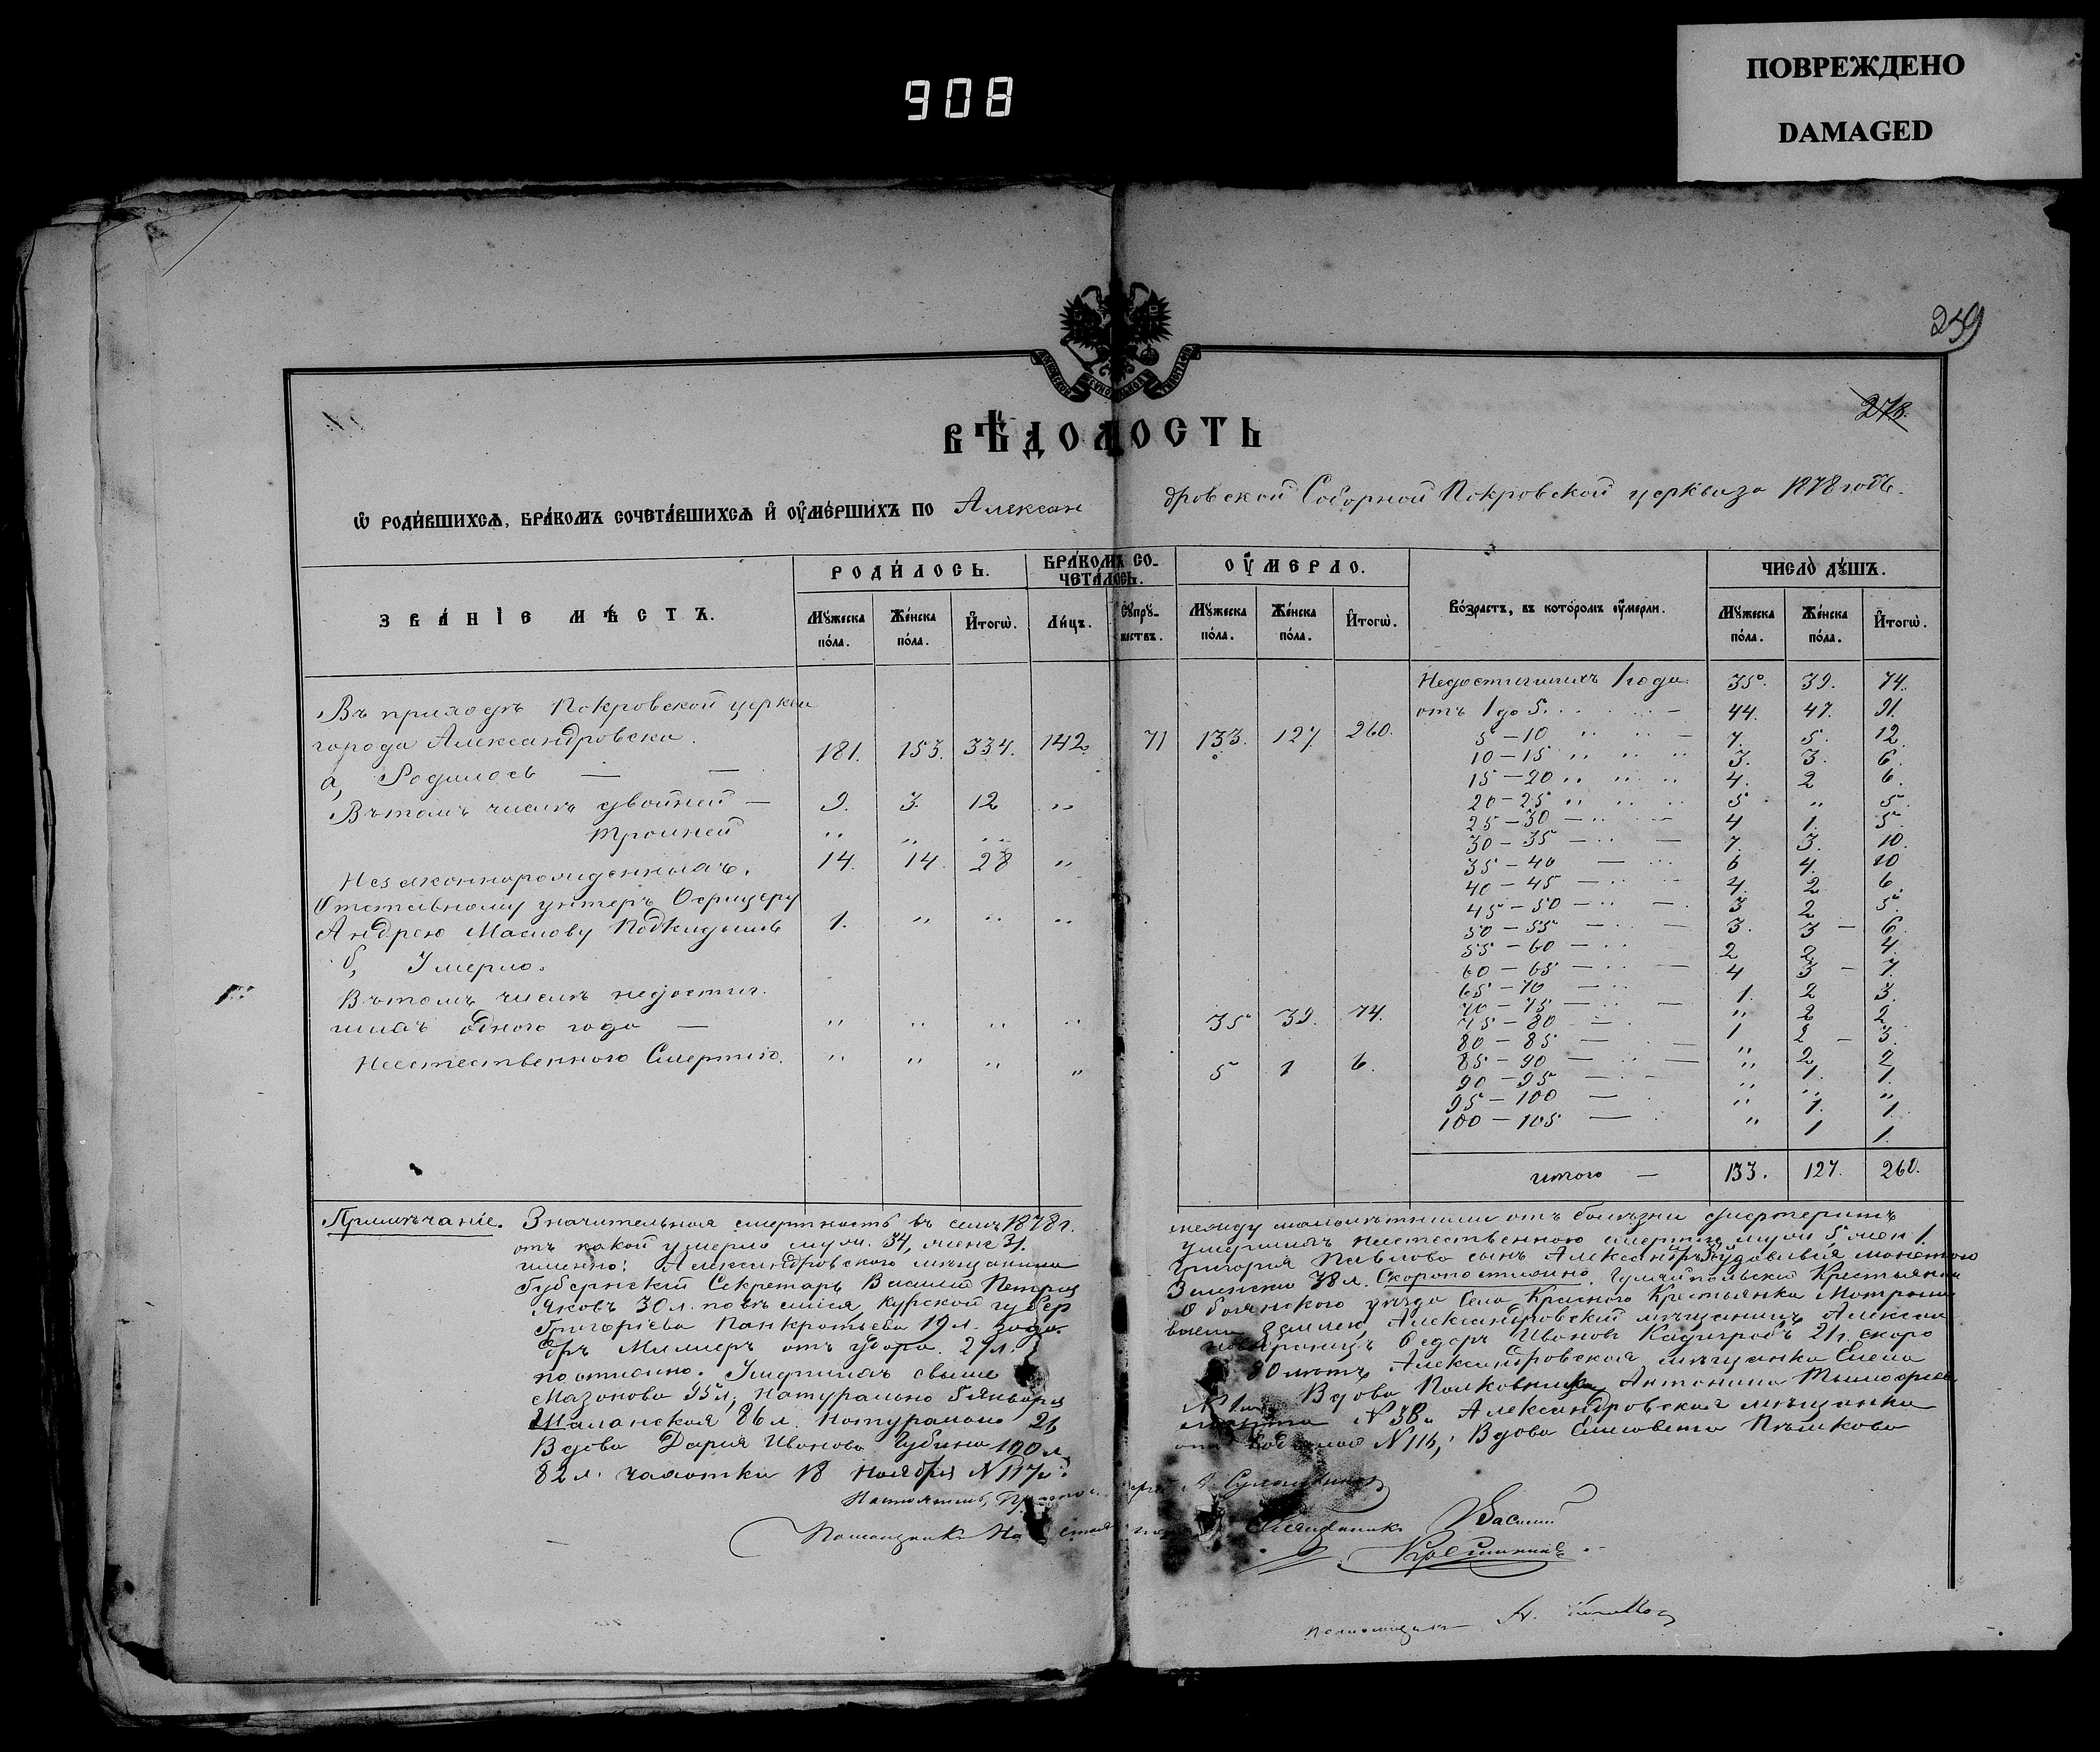 908
ПОВРЕЖДЕНО
DAMAGED
239
278.
ВѢДОМОСТЬ
Ѡ РОДИВШИХСѦ, БРАКОМЪ СОЧЕТАВШИХСѦ И ОУМЕРШИХЪ ПО Александровской Соборной Покровской церкви за 1878 годъ.
ЗВАНІЕ МѢСТЪ. РОДИЛОСЬ. БРАКОМЪ СОЧЕТАЛОСЬ. ОУМЕРЛО. Возрастъ, въ которомъ оумерли. ЧИСЛО ДУШЪ.
Мужеска пола. Женска пола. Итогѡ. Лицъ. Супружествъ. Мужеска пола. Женска пола. Итогѡ. Мужеска пола. Женска пола. Итогѡ.
Въ приходѣ Покровской церкви
города Александровска.
а, Родилось — — 181. 153. 334. 142. 71 133. 127. 260.
Въ томъ числѣ двойней — 9. 3. 12 „
тройней „ „ „
Незаконнорожденныхъ. 14. 14. 28 „
Отставному унтеръ Офицеру
Андрею Маслову Подкидышъ 1. „ „ „
б, Умерло.
Въ томъ числѣ недостиг-
шихъ одного года — „ „ „ „ 35 39. 74.
Неестественною Смертію. „ „ „ „ 5 1 6.
Недостигшихъ 1 года. 35. 39. 74.
отъ 1 до 5. 44. 47. 91.
5 — 10 7. 5. 12.
10 — 15 3. 3. 6.
15 — 20 4. 2 6.
20 — 25 5 „ 5.
25 — 30 4 1. 5
30 — 35 7. 3. 10.
35 — 40 6 4. 10
40 — 45 4. 2 6.
45 — 50 3 2 5.
50 — 55 3. 3 — 6.
55 — 60 2 2 4.
60 — 65 4 3 — 7.
65 — 70 1. 2 3.
70 — 75 „ 2 2.
75 — 80 1 2 — 3.
80 — 85 „ 2 2
85 — 90 „ 1. 1.
90 — 95 „ „ „
95 — 100 „ 1. 1.
100 — 105 „ 1 1.
итого — 133. 127. 260.
Примѣчаніе. Значительная смертность въ семъ 1878 г. между малолѣтними отъ болѣзни дифтеритъ
отъ какой умерло муж. 34, женс 31. Умершихъ неестественною смертію муж 5 жен 1.
именно: Александровскаго мѣщанина Григорія Павлова сынъ Александръ
Губернскій Секретарь Василій Петровъ Зеленскій 38 л. Скоропостижно. Гуляйпольскій Крестьянинъ
Яковъ 30 л. повѣсился, Курской губер Обоянскаго уѣзда Села Краснаго Крестьянка Матрона
Григоріева Панкратьева 19 л. землею, Александровскій мѣщанинъ
Миллеръ отъ удара. 27 л. Ѳедоръ Ивановъ 21 г. скоро
постижно. Умершихъ свыше 80 лѣтъ Александровская мѣщанка Елена
Мазонова 95 л, натурально 5 Января № 1 Вдова Полковника Антонина
Шаманская 86 л. Натурально 26 № 38. Александровская мѣщанка
Вдова Дарія Иванова Губина 100 л. № 116, Вдова Елисавета Пѣшкова
82 л. чахотки 18 Ноября № 117.
Настоятель,
Помощникъ Настоятеля Священникъ Василій